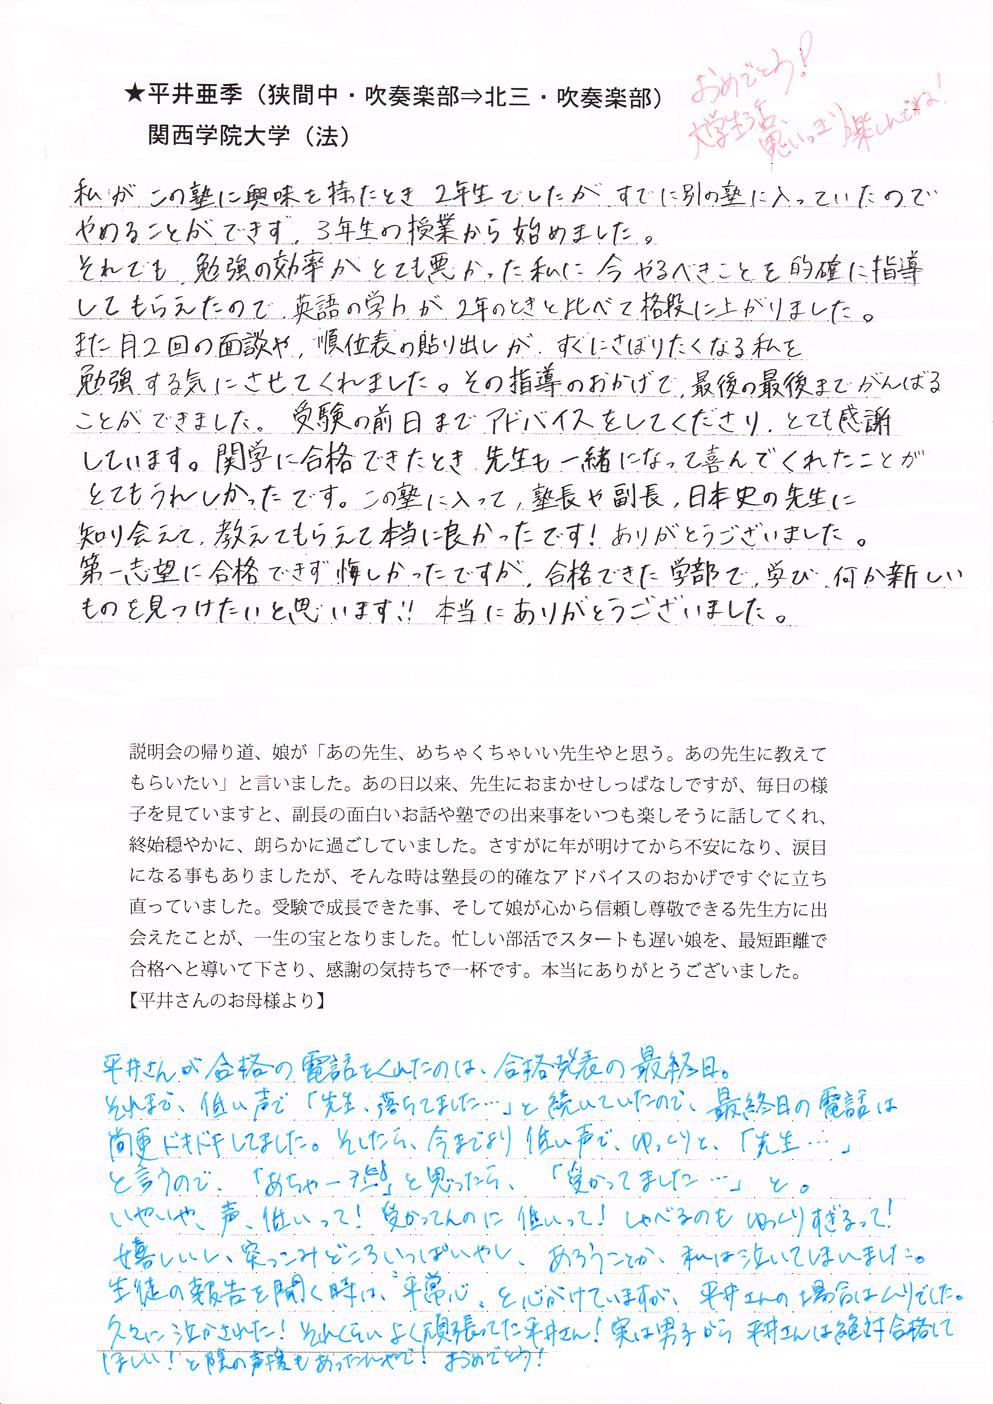 ★平井亜季（狭間中・吹奏楽部⇒北三・吹奏楽部）
関西学院大学（法）
おめでとう！
大学生活、
思いっきり楽しんでね！
私が この塾に興味を持たとき 2年生でしたが すでに別の塾に入っていたので
やめることができず、3年生の授業から始めました。
それでも、勉強の効率が とても悪かった私に 今やるべきことを的確に指導
してもらえたので、英語の学力が 2年のときと比べて格段に上がりました。
また月2回の面談や、順位表の貼り出しが、すぐにさぼりたくなる私を
勉強する気にさせてくれました。その指導のおかげで、最後の最後までがんばる
ことができました。 受験の前日までアドバイスをしてくださり、とても感謝
しています。関学に合格できたとき 先生も一緒になって喜んでくれたことが
とてもうれしかったです。この塾に入って、塾長や副長、日本史の先生に
知り会えて、教えてもらえて本当に良かったです！ありがとうございました。
第一志望に合格できず悔しかったですが、合格できた学部で、学び、何か新しい
ものを見つけたいと思います!! 本当にありがとうございました。
説明会の帰り道、娘が「あの先生、めちゃくちゃいい先生やと思う。あの先生に教えて
もらいたい」と言いました。あの日以来、先生におまかせしっぱなしですが、毎日の様
子を見ていますと、副長の面白いお話や塾での出来事をいつも楽しそうに話してくれ、
終始穏やかに、朗らかに過ごしていました。さすがに年が明けてから不安になり、涙目
になる事もありましたが、そんな時は塾長の的確なアドバイスのおかげですぐに立ち
直っていました。受験で成長できた事、そして娘が心から信頼し尊敬できる先生方に出
会えたことが、一生の宝となりました。忙しい部活でスタートも遅い娘を、最短距離で
合格へと導いて下さり、感謝の気持ちで一杯です。本当にありがとうございました。
【平井さんのお母様より】
平井さんが合格の電話をくれたのは、合格発表の最終日。
それまで、低い声で「先生、落ちてました…」と続いていたので、最終日の電話は
尚更ドキドキしてました。そしたら、今までより低い声で、ゆっくりと、「先生…」
と言うので、「あちゃー」と思ったら、「受かってました…」と。
いやいや、声、低いって！受かってんのに低いって！しゃべるのもゆっくりすぎるって！
嬉しいし、突っこみどころいっぱいやし、あろうことか、私は泣いてしまいました。
生徒の報告を聞く時は、"平常心"と心がけていますが、平井さんの場合はムリでした。
久々に泣かされた！それくらいよく頑張ってた平井さん！実は男子から平井さんは絶対合格して
ほしい！と陰の声援もあったんやで！おめでとう！